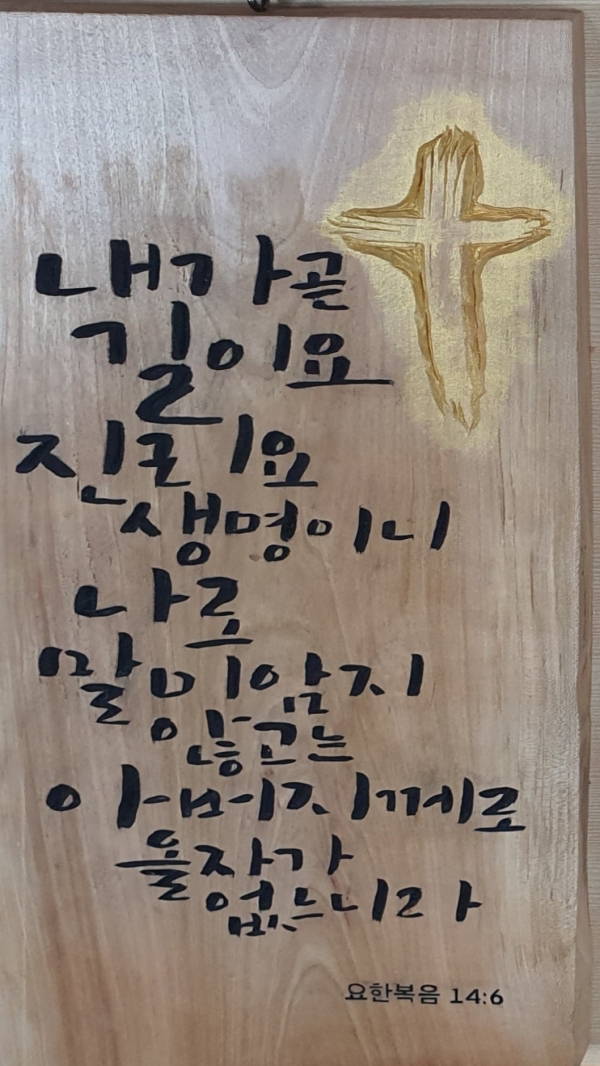 내가 곧
길이요
진리요
생명이니
나로
말미암지
않고는
아버지께로
올 자가
없느니라
요한복음 14:6